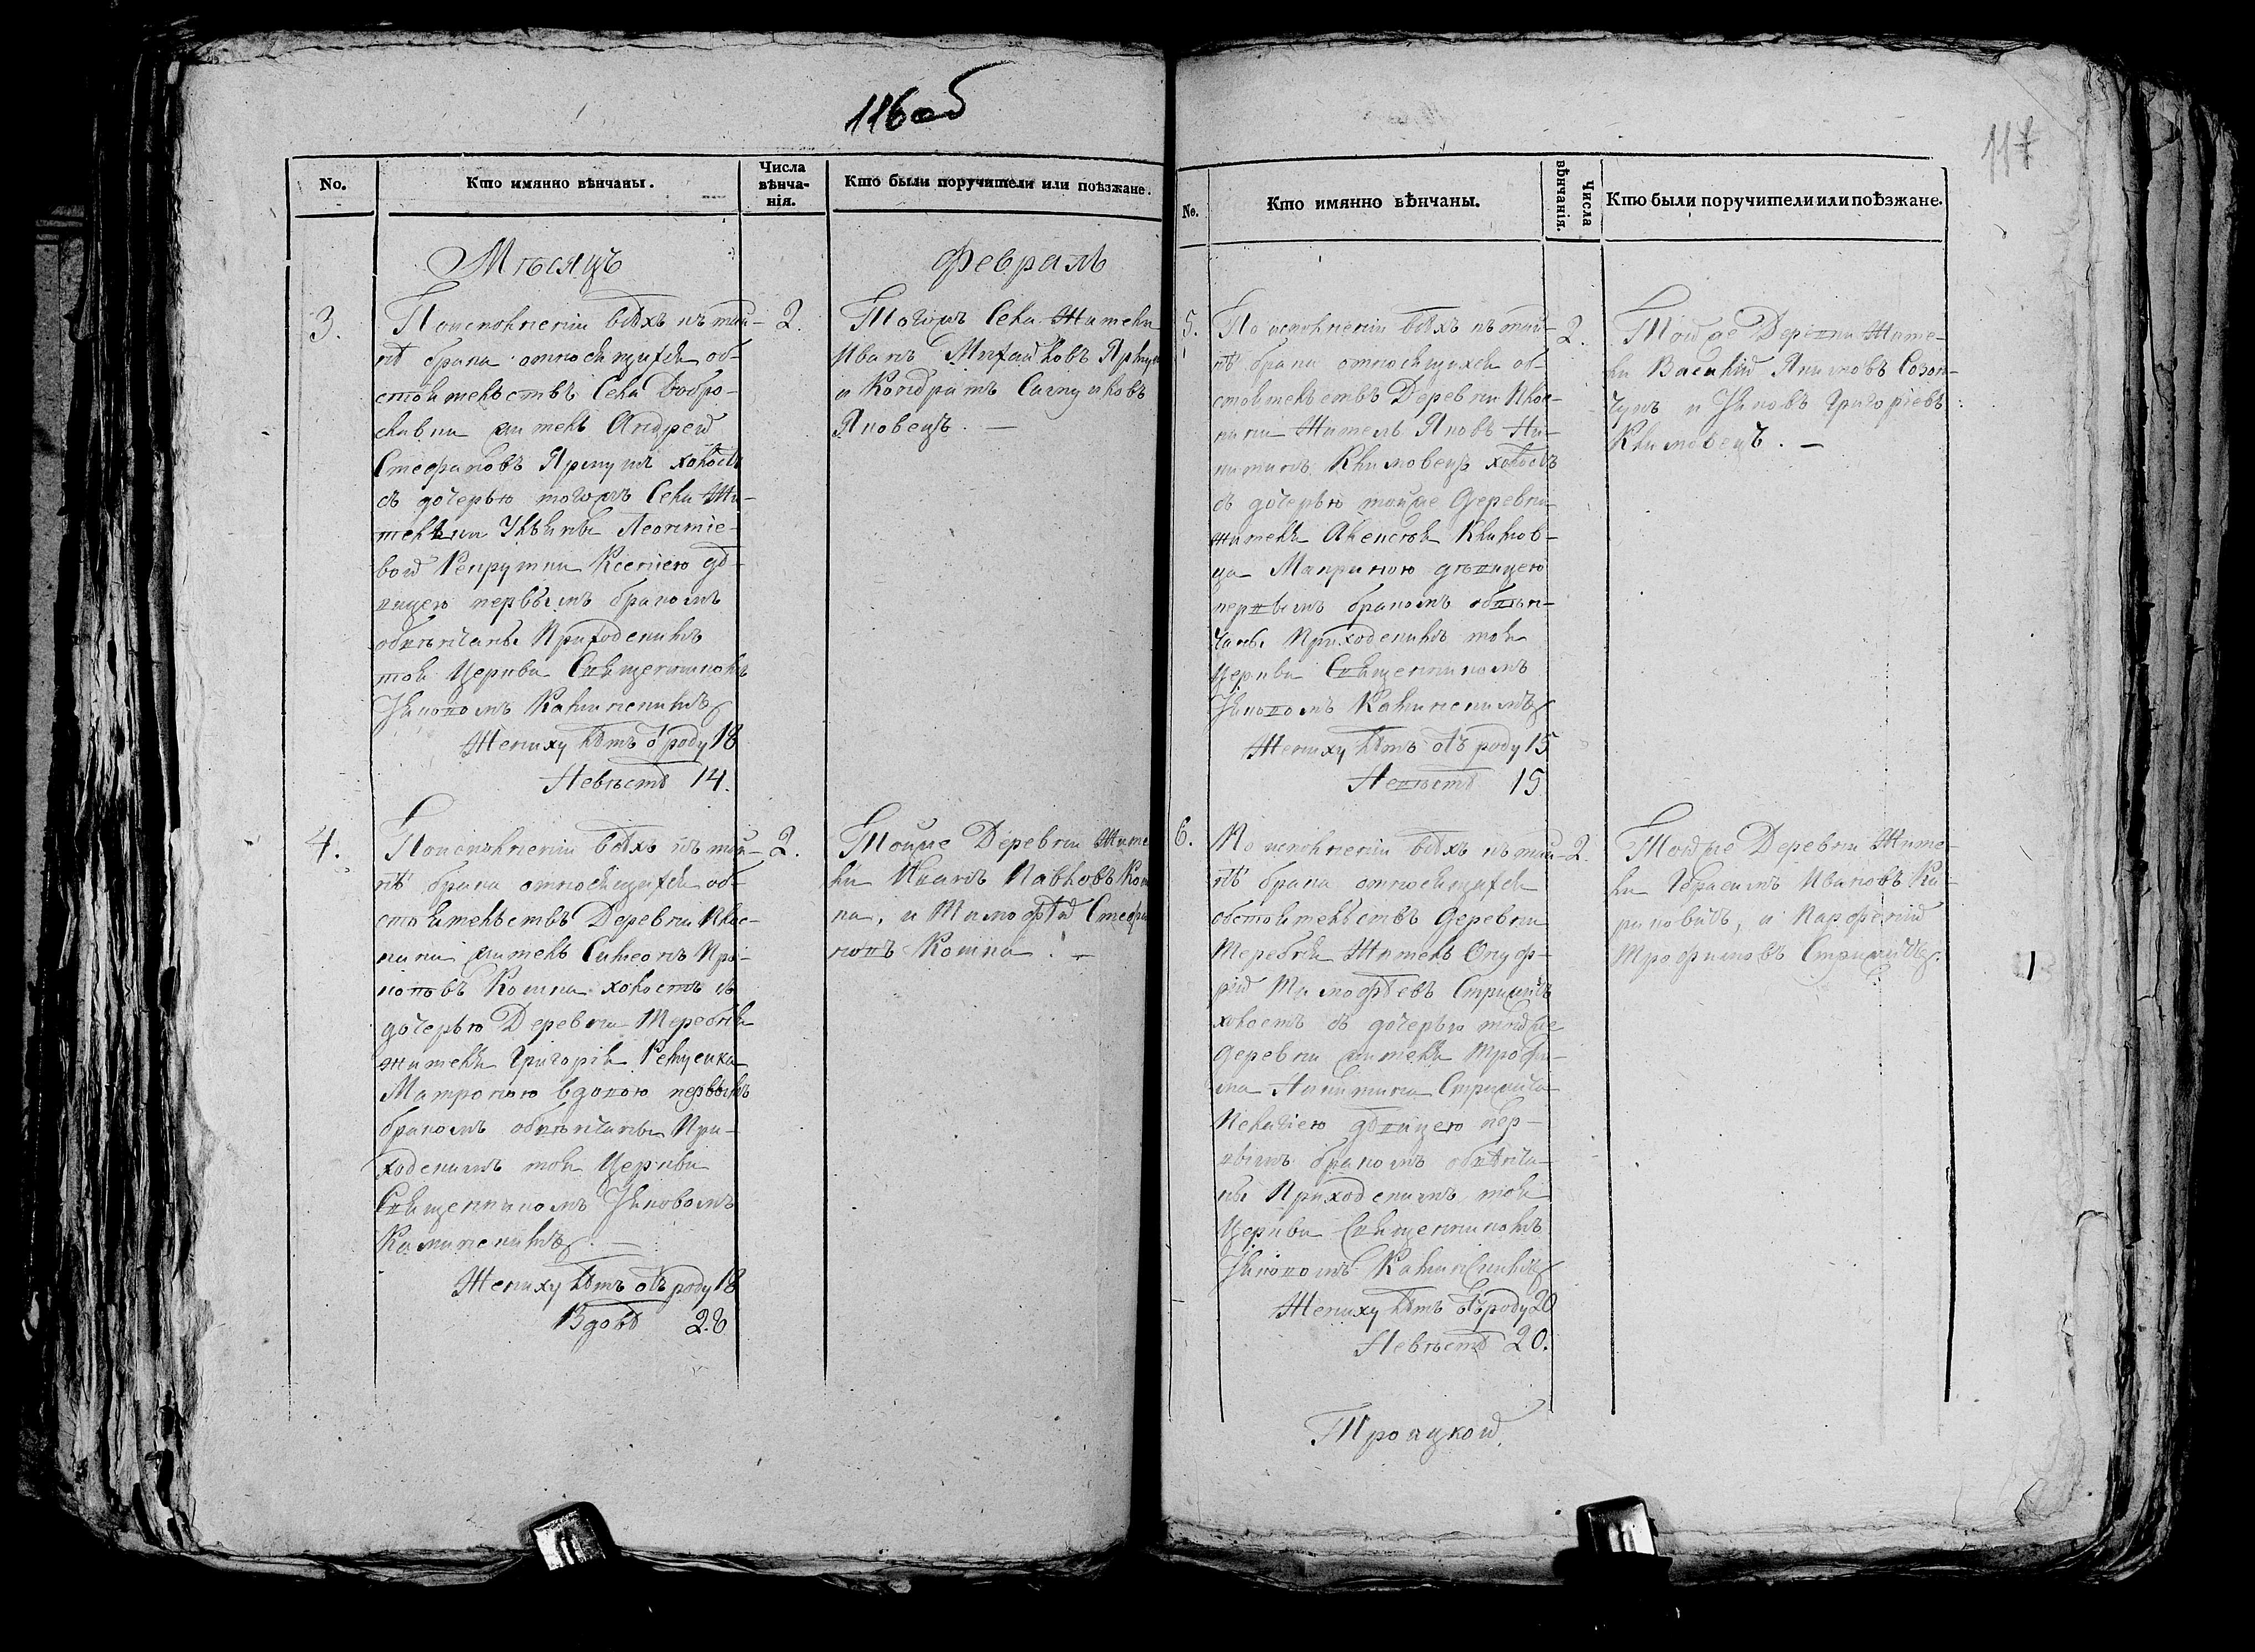 116об
No.
Кто имянно вѣнчаны.
Числа
вѣнча-
нія.
Кто были поручители или поѣзжане.
Мѣсяцъ
Февраль
3.
По исполненіи всѣхъ къ тай-
нѣ брака относящихся об-
стоятельствъ Села Добро-
славки житель Андрей
Стефановъ холостъ
съ дочерью тогожъ Села Жи-
тельки Ульяны Леонтіе-
вой Ксеніею дѣ-
вицею первымъ бракомъ
обвѣнчаны Приходскимъ
тоя Церкви Священникомъ
Іяковомъ Калинскимъ
Жениху лѣтъ отъ роду 18
Невѣстѣ 14.
2.
Тогожъ Села Жители
Иванъ Михайловъ
и Кондратъ Самуиловъ
Яковецъ. —
4.
По исполненіи всѣхъ къ тай-
нѣ брака относящихся об-
стоятельствъ Деревни Плос-
кини житель Симеонъ Про-
коповъ Кошка холостъ съ
дочерью Деревни Теребня
жителя Григорія
Матроною вдовою первымъ
бракомъ обвѣнчаны При-
ходскимъ тоя Церкви
Священникомъ Іяковомъ
Калинскимъ. —
Жениху лѣтъ отъ роду 18
Вдовѣ 28
2.
Тойже Деревни Жите
ли Иванъ Павловъ Кош
ка, и Тимофѣй Стефа
новъ Кошка. —
117
No.
Кто имянно вѣнчаны.
Числа
вѣнчанія.
Кто были поручители или поѣзжане.
5.
По исполненіи всѣхъ къ тай-
нѣ брака относящихся об-
стоятельствъ Деревни Плос-
кини Житель Яковъ Ни-
китинъ Климовецъ холостъ
съ дочерью тойже Деревни
жителя Климов-
ца Макриною дѣвицею
первымъ бракомъ обвѣн-
чаны Приходскимъ тоя
Церкви Священникомъ
Іяковомъ Калинскимъ
Жениху лѣтъ отъ роду 15
Невѣстѣ 15
2.
Тойже Деревни Жите-
ли Василій Якимовъ
и Іяковъ Григоріевъ
Климовецъ. —
6.
По исполненіи всѣхъ къ тай-
нѣ брака относящихся
обстоятельствъ Деревни
Теребня Житель Онуф-
рій Тимофѣевъ
холостъ съ дочерью тойже
Деревни жителя Трофи-
ма Никитина
Пелагіею дѣвицею пер-
вымъ бракомъ обвѣнча-
ны Приходскимъ тоя
Церкви Священникомъ
Іяковомъ Калинскимъ
Жениху лѣтъ отъ роду 20
Невѣстѣ 20.
2.
Тойже Деревни Жите-
ли Герасимъ Ивановъ Ка-
риковичъ, и Парфеній
Трофимовъ
Троицкой